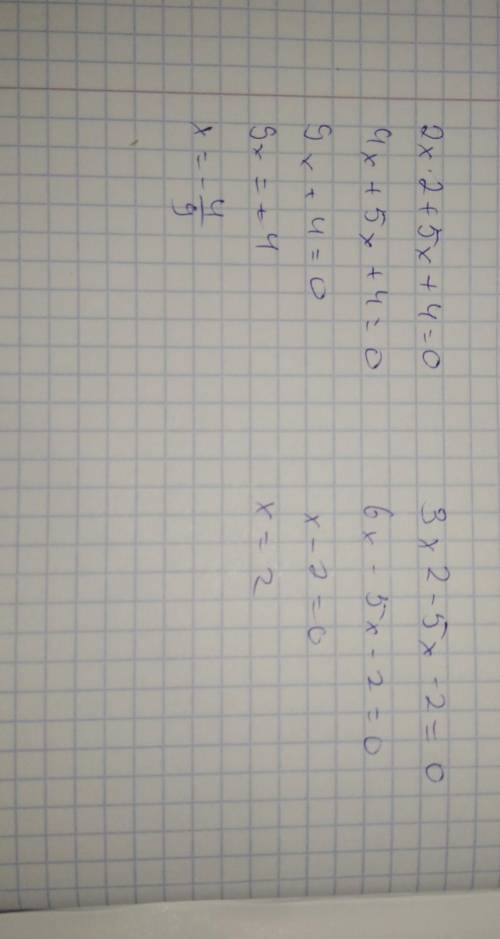 2x·2+5x+4=0
4x+5x+4=0
9x+4=0
9x=+4
x=-4/9
3x2-5x-2=0
6x-5x-2=0
x-2=0
x=2